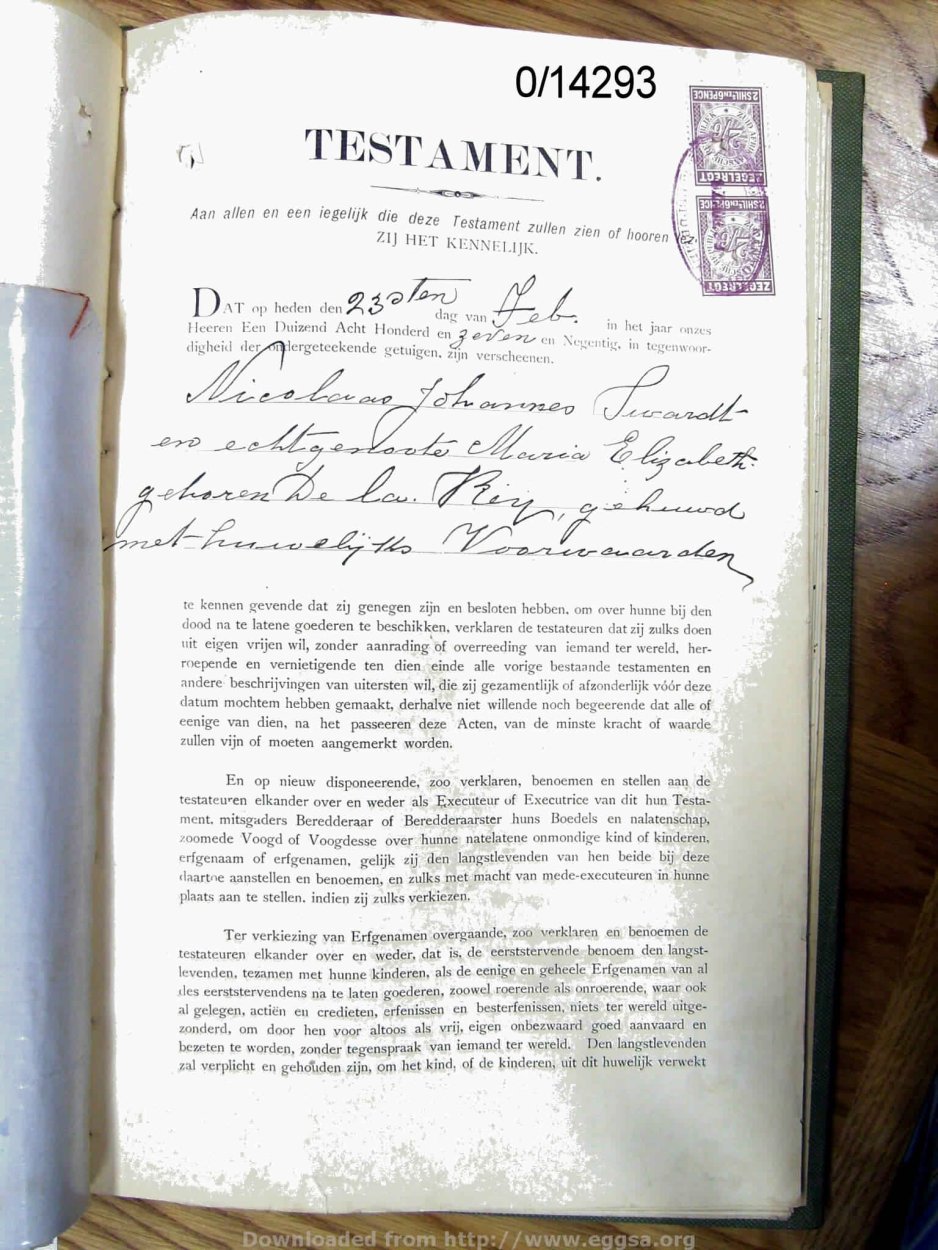 0/14293
2 SHIL. EN 6 PENCE
ZEGELREGT
2 SHIL. EN 6 PENCE
ZEGELREGT
TESTAMENT.
Aan allen en een iegelijk die deze Testament zullen zien of hooren
ZIJ HET KENNELIJK.
DAT op heden den 23sten dag van Feb. in het jaar onzes
Heeren Een Duizend Acht Honderd en zeven en Negentig, in tegenwoor-
digheid der ondergeteekende getuigen, zijn verscheenen.
Nicolaas Johannes Swardt
en echtgenoote Maria Elizabeth
geboren De la Rey, gehuwd
met huwelijks Voorwaarden
te kennen gevende dat zij genegen zijn en besloten hebben, om over hunne bij den
dood na te latene goederen te beschikken, verklaren de testateuren dat zij zulks doen
uit eigen vrijen wil, zonder aanrading of overreeding van iemand ter wereld, her-
roepende en vernietigende ten dien einde alle vorige bestaande testamenten en
andere beschrijvingen van uitersten wil, die zij gezamentlijk of afzonderlijk vóór deze
datum mochtem hebben gemaakt, derhalve niet willende noch begeerende dat alle of
eenige van dien, na het passeeren deze Acten, van de minste kracht of waarde
zullen vijn of moeten aangemerkt worden.
En op nieuw disponeerende, zoo verklaren, benoemen en stellen aan de
testateuren elkander over en weder als Executeur of Executrice van dit hun Testa-
ment, mitsgaders Beredderaar of Beredderaarster huns Boedels en nalatenschap,
zoomede Voogd of Voogdesse over hunne natelatene onmondige kind of kinderen,
erfgenaam of erfgenamen, gelijk zij den langstlevenden van hen beide bij deze
daartoe aanstellen en benoemen, en zulks met macht van mede-executeuren in hunne
plaats aan te stellen, indien zij zulks verkiezen.
Ter verkiezing van Erfgenamen overgaande, zoo verklaren en benoemen de
testateuren elkander over en weder, dat is, de eerststervende benoem den langst-
levenden, tezamen met hunne kinderen, als de eenige en geheele Erfgenamen van al
des eerststervendens na te laten goederen, zoowel roerende als onroerende, waar ook
al gelegen, actiën en credieten, erfenissen en besterfenissen, niets ter wereld uitge-
zonderd, om door hen voor altoos als vrij, eigen onbezwaard goed aanvaard en
bezeten te worden, zonder tegenspraak van iemand ter wereld. Den langstlevenden
zal verplicht en gehouden zijn, om het kind, of de kinderen, uit dit huwelijk verwekt
Downloaded from http://www.eggsa.org